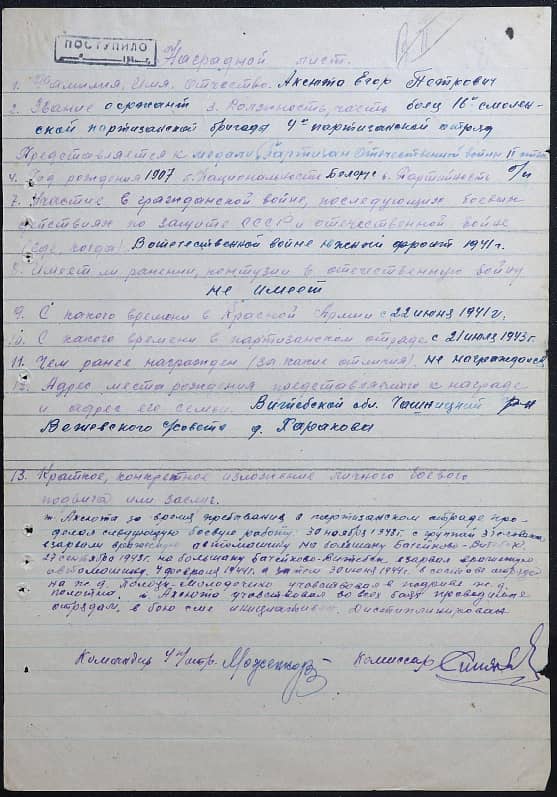 ПОСТУПИЛО
Наградной лист.
1. Фамилия, Имя, Отчество. Аксюта Егор Петрович
2. Звание сержант 3. Должность, часть боец 16й смолен-
ской партизанской бригады 4го партизанской отряд
Представляется к медали "Партизан Отечественной войны II
4. Год рождения 1907 г. Национальность Белорус 6. Партийность б/п
7. Участие в гражданской войне, последующих боевых
действиях по защите СССР и отечественной войне
(где, когда) В отечественной войне южный фронт 1941 г.
8. Имеет ли ранении, контузии в отечественную войну
не имеет
9. С какого времени в Красной Армии с 22 июня 1941 г.
10. С какого времени в партизанском отряде с 21 июля 1943 г.
11. Чем ранее награжден (за какие отличия). не награждался
12. Адрес места рождения представляемого к награде
и адрес его семьи. Витебской обл. Чашницкий р-н
совета д.
13. Краткое, конкретное изложение личного боевого
подвига или заслуг.
т. Аксюта за время пребывания в партизанском отряде про-
делал следующую боевую работу. 30 ноября 1943 г. с группой
взорвали вражескую автомашину на большаку
27 сентября 1943 г. на большаку взорвал вражескую
автомашину, 4 февраля 1944 г. а затем 30 июня 1944 г. в составе отряда
на ж.д. Полоцк-Молодечно участвовал в подрыве ж.д.
полотна. т. Аксюта участвовал во всех боях проводимых
отрядом, в бою смел инициативен. Дисциплинирован
Командир 4 отр. Комиссар